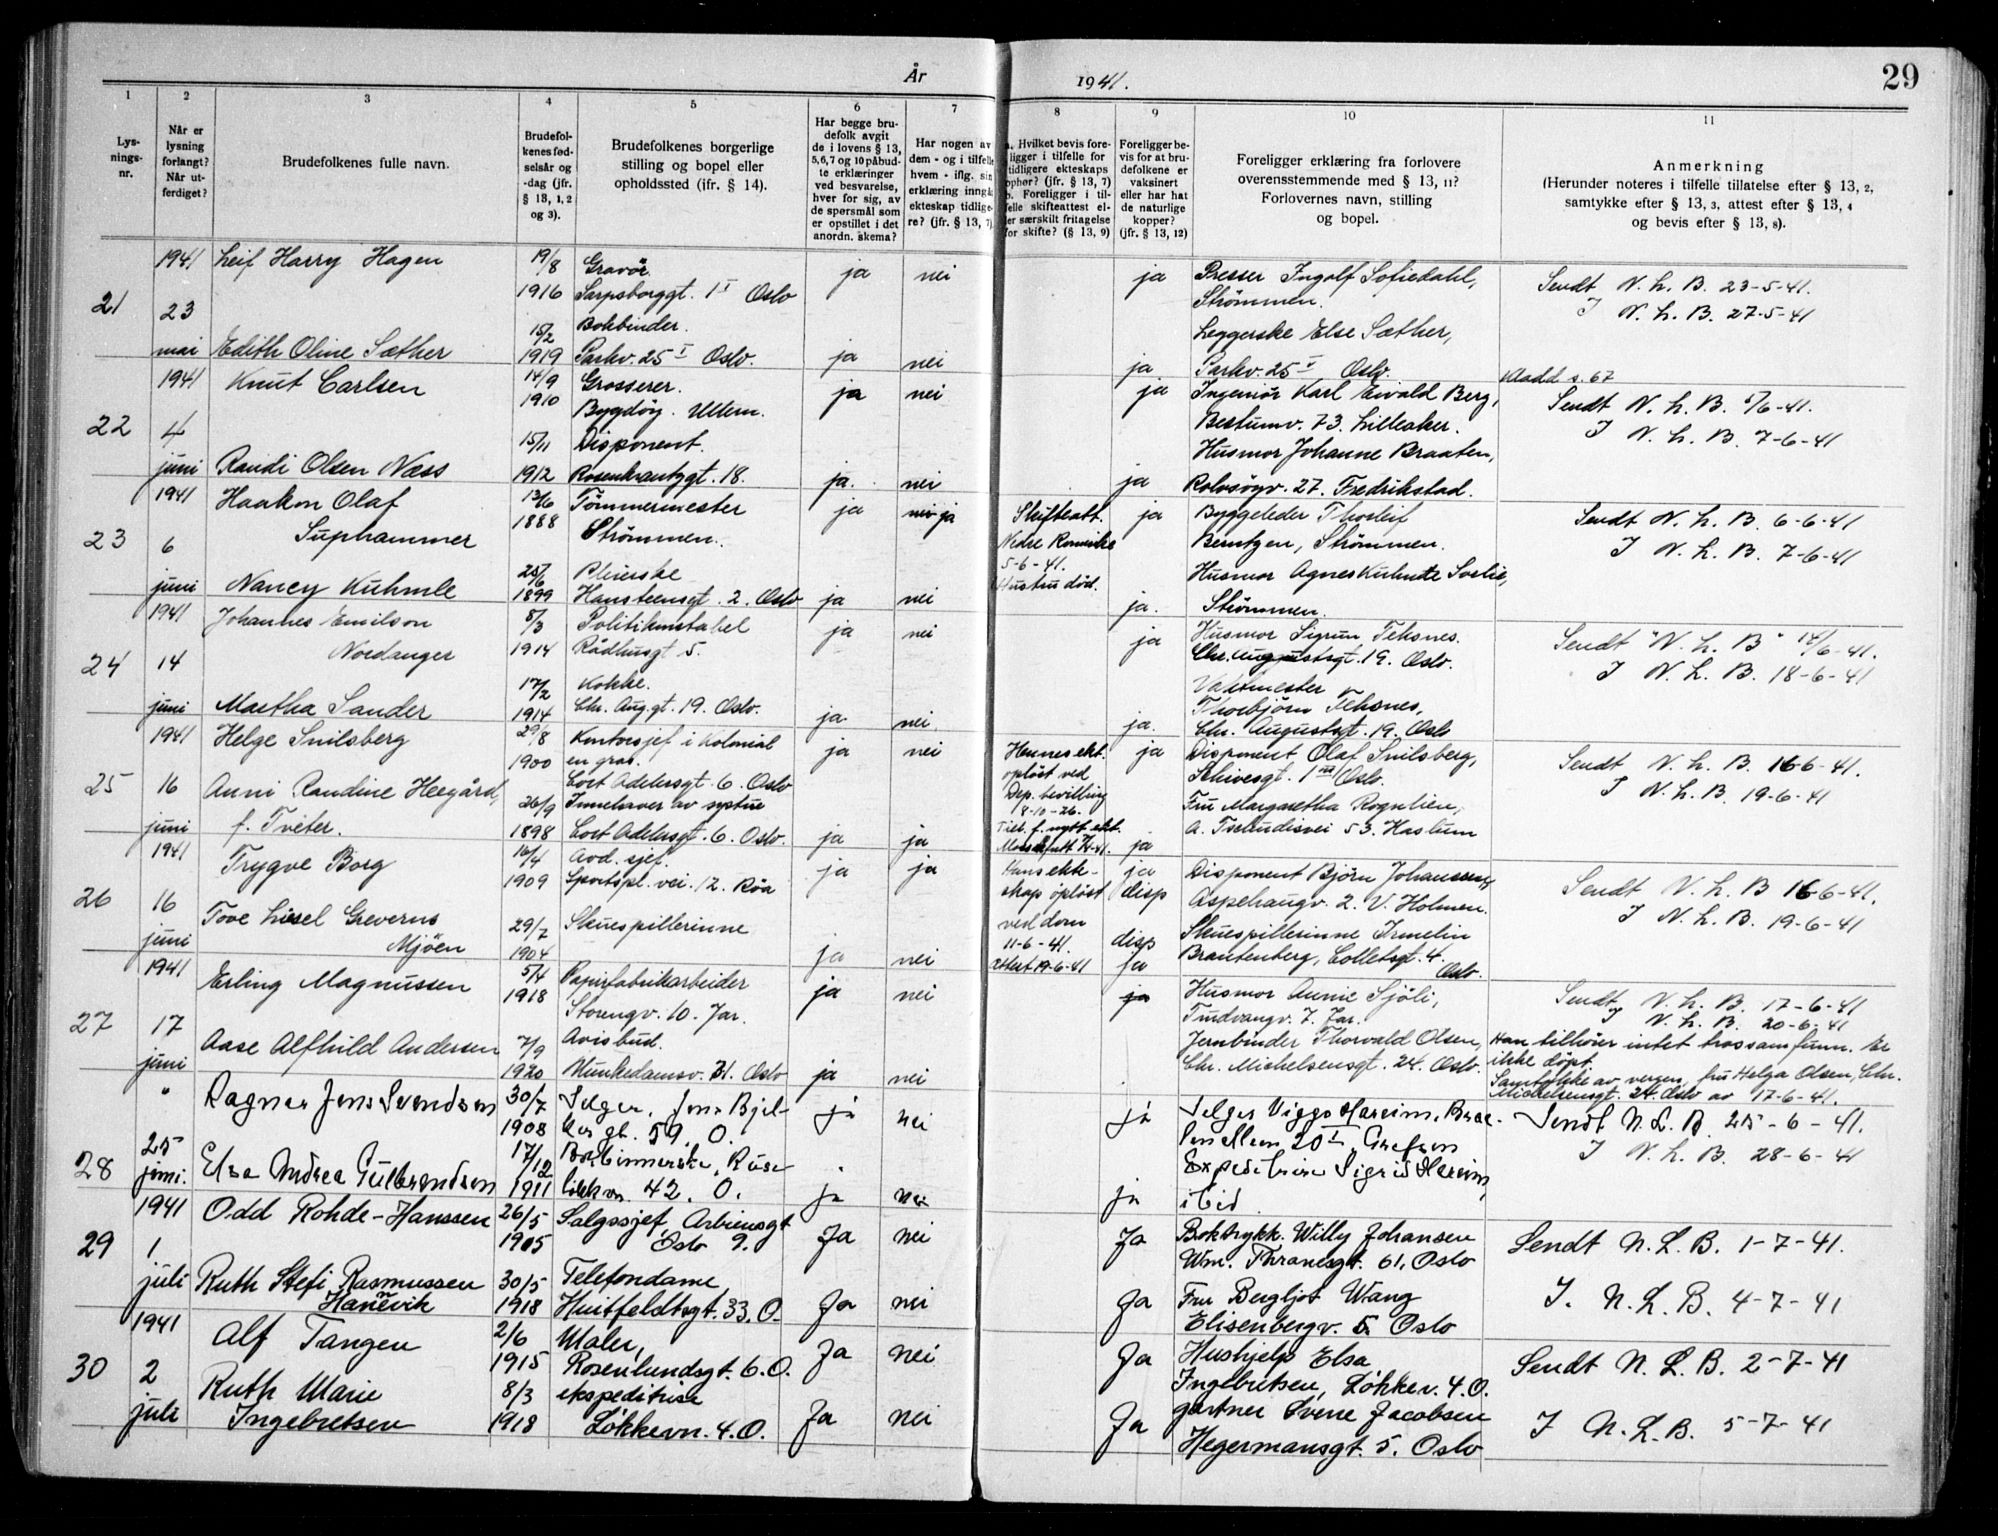 År 1941.
29
1
2
3
4
5
6
7
8
9
10
11
Lys-
nings-
nr.
Når er
lysning
forlangt?
Når ut-
ferdiget?
Brudefolkenes fulle navn.
Brudefol-
kenes fød-
selsår og
-dag (jfr.
§ 13, 1, 2
og 3).
Brudefolkenes borgerlige
stilling og bopel eller
opholdssted (ifr. § 14).
Har begge bru-
defolk avgit
de i lovens § 13,
5,6,7 og 10 påbud-
te erklæringer
ved besvarelse,
hver for sig, av
de spørsmål som
er opstillet i det
anordn. skema?
Har nogen av
dem - og i tilfelle
hvem - iflg. sin
erklæring inngåt
ekteskap tidlige-
re? (jfr. § 13, 7)
a. Hvilket bevis fore-
ligger i tilfelle for
tidligere ekteskaps
ophør? (jfr. § 13, 7)
b. Foreligger i til-
felle skifteattest el-
ler særskilt fritagelse
for skifte? (§ 13, 9)
Foreligger be-
vis for at bru-
defolkene er
vaksinert
eller har hat
de naturlige
kopper?
(jfr. § 13, 12)
Foreligger erklæring fra forlovere
overensstemmende med § 13, 11?
Forlovernes navn, stilling
og bopel.
Anmerkning
(Herunder noteres i tilfelle tillatelse efter § 13, 2,
samtykke efter § 13, 3, attest efter § 13, 4
og bevis efter § 13, 8).
21
1941
23
mai
Leif Harry Hagen
19/8
1916
Gravör
Sarpsborggt. 1 I Oslo
ja
nei
ja
Presser Ingolf Sofiedahl,
Strömmen.
Sendt N. L. B. 23-5-41.
I N. L. B. 27-5-41
Edith Oline Sæther
15/2
1919
Bokbinder.
Parkv. 25 I Oslo.
ja
nei
ja
Leggerske Else Sæther,
Parkv. 25 I Oslo.
22
1941
4
juni
Knut Carlsen
14/9
1910
Grosserer.
Bygdöy. Ullern.
ja
nei
ja
Ingeniör Karl Eivald Berg,
Bestumv. 73. Lilleaker.
Kladd s. 67
Sendt N. L. B. 5/6-41.
I N. L. B. 7-6-41
Randi Olsen Næss
15/11
1912
Disponent.
Rosenkrantzgt. 18.
ja.
nei
ja
Husmor Johanne Braaten,
Rolvsögv. 27. Fredrikstad.
23
1941
6
juni
Haakon Olaf
Suphammer
13/6
1888
Tömmermester
Strömmen.
ja
nei ja
Skifteatt.
Nedre Romerike
5-6-41.
Hustru död.
ja
Byggeleder Thorleif
Berntzen, Strömmen.
Sendt N. L. B. 6-6-41
I N. L. B. 7-6-41
Nancy Kuhmle
25/6
1899
Pleierske
Hansteensgt. 2. Oslo
ja
nei
ja.
Husmor Agnes Kuhmle Sørlie,
Strömmen.
24
1941
14
juni
Johannes Emilson
Nordanger
8/3
1914
Politikonstabel
Rådhusgt 5.
ja
nei
ja
Husmor Sigrun Teksnes.
Chr. Augustsgt. 19. Oslo.
Sendt "N. L. B" 14/6-41.
I N. L. B. 18-6-41
Martha Sander
17/2
1914
Kokke.
Chr. Aug.gt. 19. Oslo.
ja.
nei
ja.
Vaktmester
Thorbjörn Teksnes,
Chr. Augustsgt. 19. Oslo
25
1941
16
juni
Helge Snilsberg
29/8
1900
Kontorsjef i kolonial
en gros.
Cort Adelersgt. 6. Oslo
ja
nei
Hennes ekt.
oplöst ved
Dep. bevilling
8-10-26.
ja
Disponent Olaf Snilsberg,
Schivesgt. 1 III Oslo.
Sendt N. L. B. 16-6-41.
I N. L. B. 19-6-41
Anni Randine Heegård,
f. Tveter.
26/9
1898
Innehaver av systue
Cort Adelersgt. 6. Oslo.
ja
ja
ja
Fru Margaretha Rognlien,
A. Tschudisvei 53. Haslum
26
1941
16
juni
Trygve Borg
16/4
1909
Avd. sjef.
Sportspl. vei. 12. Röa
ja
ja
Hans ekte-
skap oplöst
ved dom
11-6-41.
Attest 19-6-41
ja
disp
Disponent Björn Johanssen,
Aspehaugv. 2. V. Holmen.
Sendt N. L. B 16-6-41.
I N. L. B. 19-6-41
Tove Liesel Greverus
Mjöen
29/7
1904
Skuespillerinne
ja
nei
disp
ja
Skuespillerinne Irmelin
Brantenberg, Colletsgt. 4.
Oslo.
27
1941
17
juni
Erling Magnussen
5/4
1918
Papirfabrikarbeider
Storengv. 10. Jar.
ja
nei
ja
Husmor Annie Sjöli,
Trudvangv. 7. Jar.
Sendt N. L. B. 17-6-41
I N. L. B. 20-6-41
Aase Alfhild Andersen
7/9
1920
Avisbud.
Munkedamsv. 31. Oslo
ja
nei
Jernbinder Thorvald Olsen,
Chr. Michelsensgt. 24. Oslo.
Han tilhörer intet trossamfunn. Er
ikke döpt.
Samtykke av vergen, fru Helga Olsen, Chr.
Michelsensgt. 24. Oslo av 17-6-41.
28
"
25
juni.
Dagner Jens Svendsen
30/7
1908
Selger. Jens Bjel-
kes gt. 59. O.
ja
nei
ja
Selger Viggo Hareim. Brae-
Sendt N. L. B. 25-6-41.
I N. L. B. 28-6-41
Elsa Andrea Gulbrandsen
17/12
1911
Bokbinnerske, Ruse-
lökkvn. 42. O.
ja
nei
ja
Expeditrise Sigrid Hareim,
ibid
29
1941
1
juli
Odd Rohde-Hanssen
26/5
1905
Salgssjef, Arbiensgt
Oslo 9.
Ja
nei
Ja
Boktrykk. Willy Johansen
Wm. Thranesgt. 61, Oslo
Sendt N. L. B. 1-7-41.
I. N. L. B. 4-7-41
Ruth Stefi Rasmussen
Hanevik
30/5
1918
Telefondame
Huitfeldtsgt. 33. O.
Ja
nei
Ja
Fru Bergljot Wang
Elisenbergv. 5. Oslo
30
1941
2
juli
Alf Tangen
2/6
1915
Maler,
Rosenlundsgt. 6. O.
Ja
nei
Ja
Hushjelp Elsa
Ingebretsen, Løkkev. 4. O.
Sendt N. L. B. 2-7-41
I N. L. B. 5-7-41
Ruth Marie
Ingebretsen
8/3
1918
ekspeditrise
Løkkevn. 4. O.
Ja
nei
Ja
gartner Sverre Jacobsen
Hegermansgt. 5. Oslo